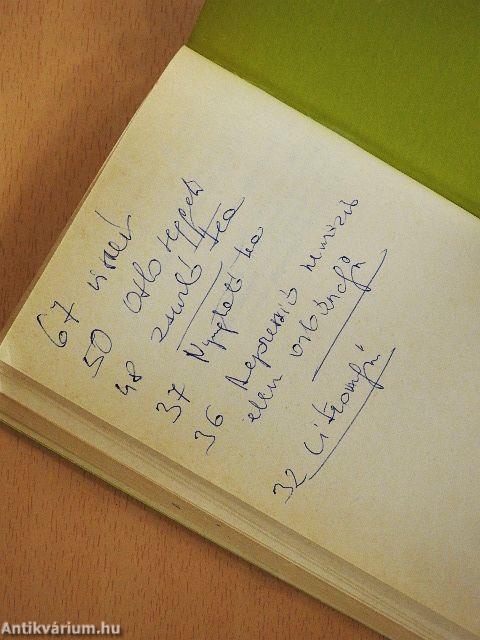 67
50 reggeli
48 zsurló tea
37 Nyugtató tea
36 Depresszió
ellen orbáncfű
32 Citromfű
Antikvárium.hu